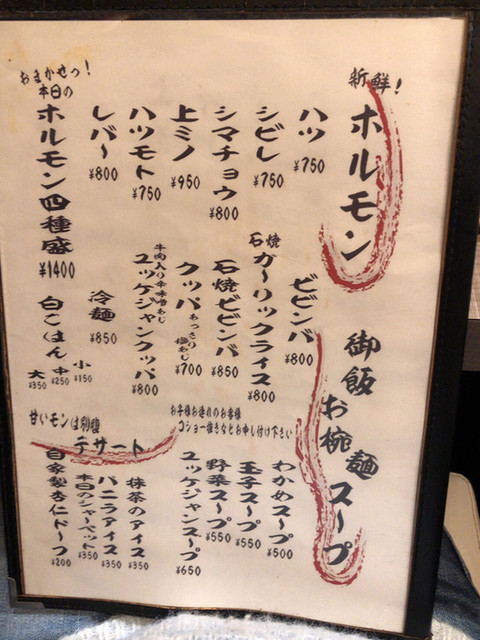 新鮮！
ホルモン
ハツ ¥750
シビレ ¥750
シマチョウ ¥800
上ミノ ¥950
ハツモト ¥750
レバー ¥800
おまかせっ！
本日の
ホルモン四種盛 ¥1400
御飯 お椀 麺 スープ
ビビンバ ¥800
石焼ガーリックライス ¥800
石焼ビビンバ ¥850
クッパ あっさり塩あじ ¥700
牛肉入り辛味噌あじ
ユッケジャンクッパ ¥800
冷麺 ¥850
白ごはん
小 ¥150
中 ¥250
大 ¥350
わかめスープ ¥500
玉子スープ ¥550
野菜スープ ¥550
ユッケジャンスープ ¥650
お子様お連れのお客様
コショー抜きなどお申し付け下さい
甘いモンは別腹
デザート
抹茶のアイス ¥350
バニラアイス ¥350
本日のシャーベット ¥350
自家製杏仁ドーフ ¥200